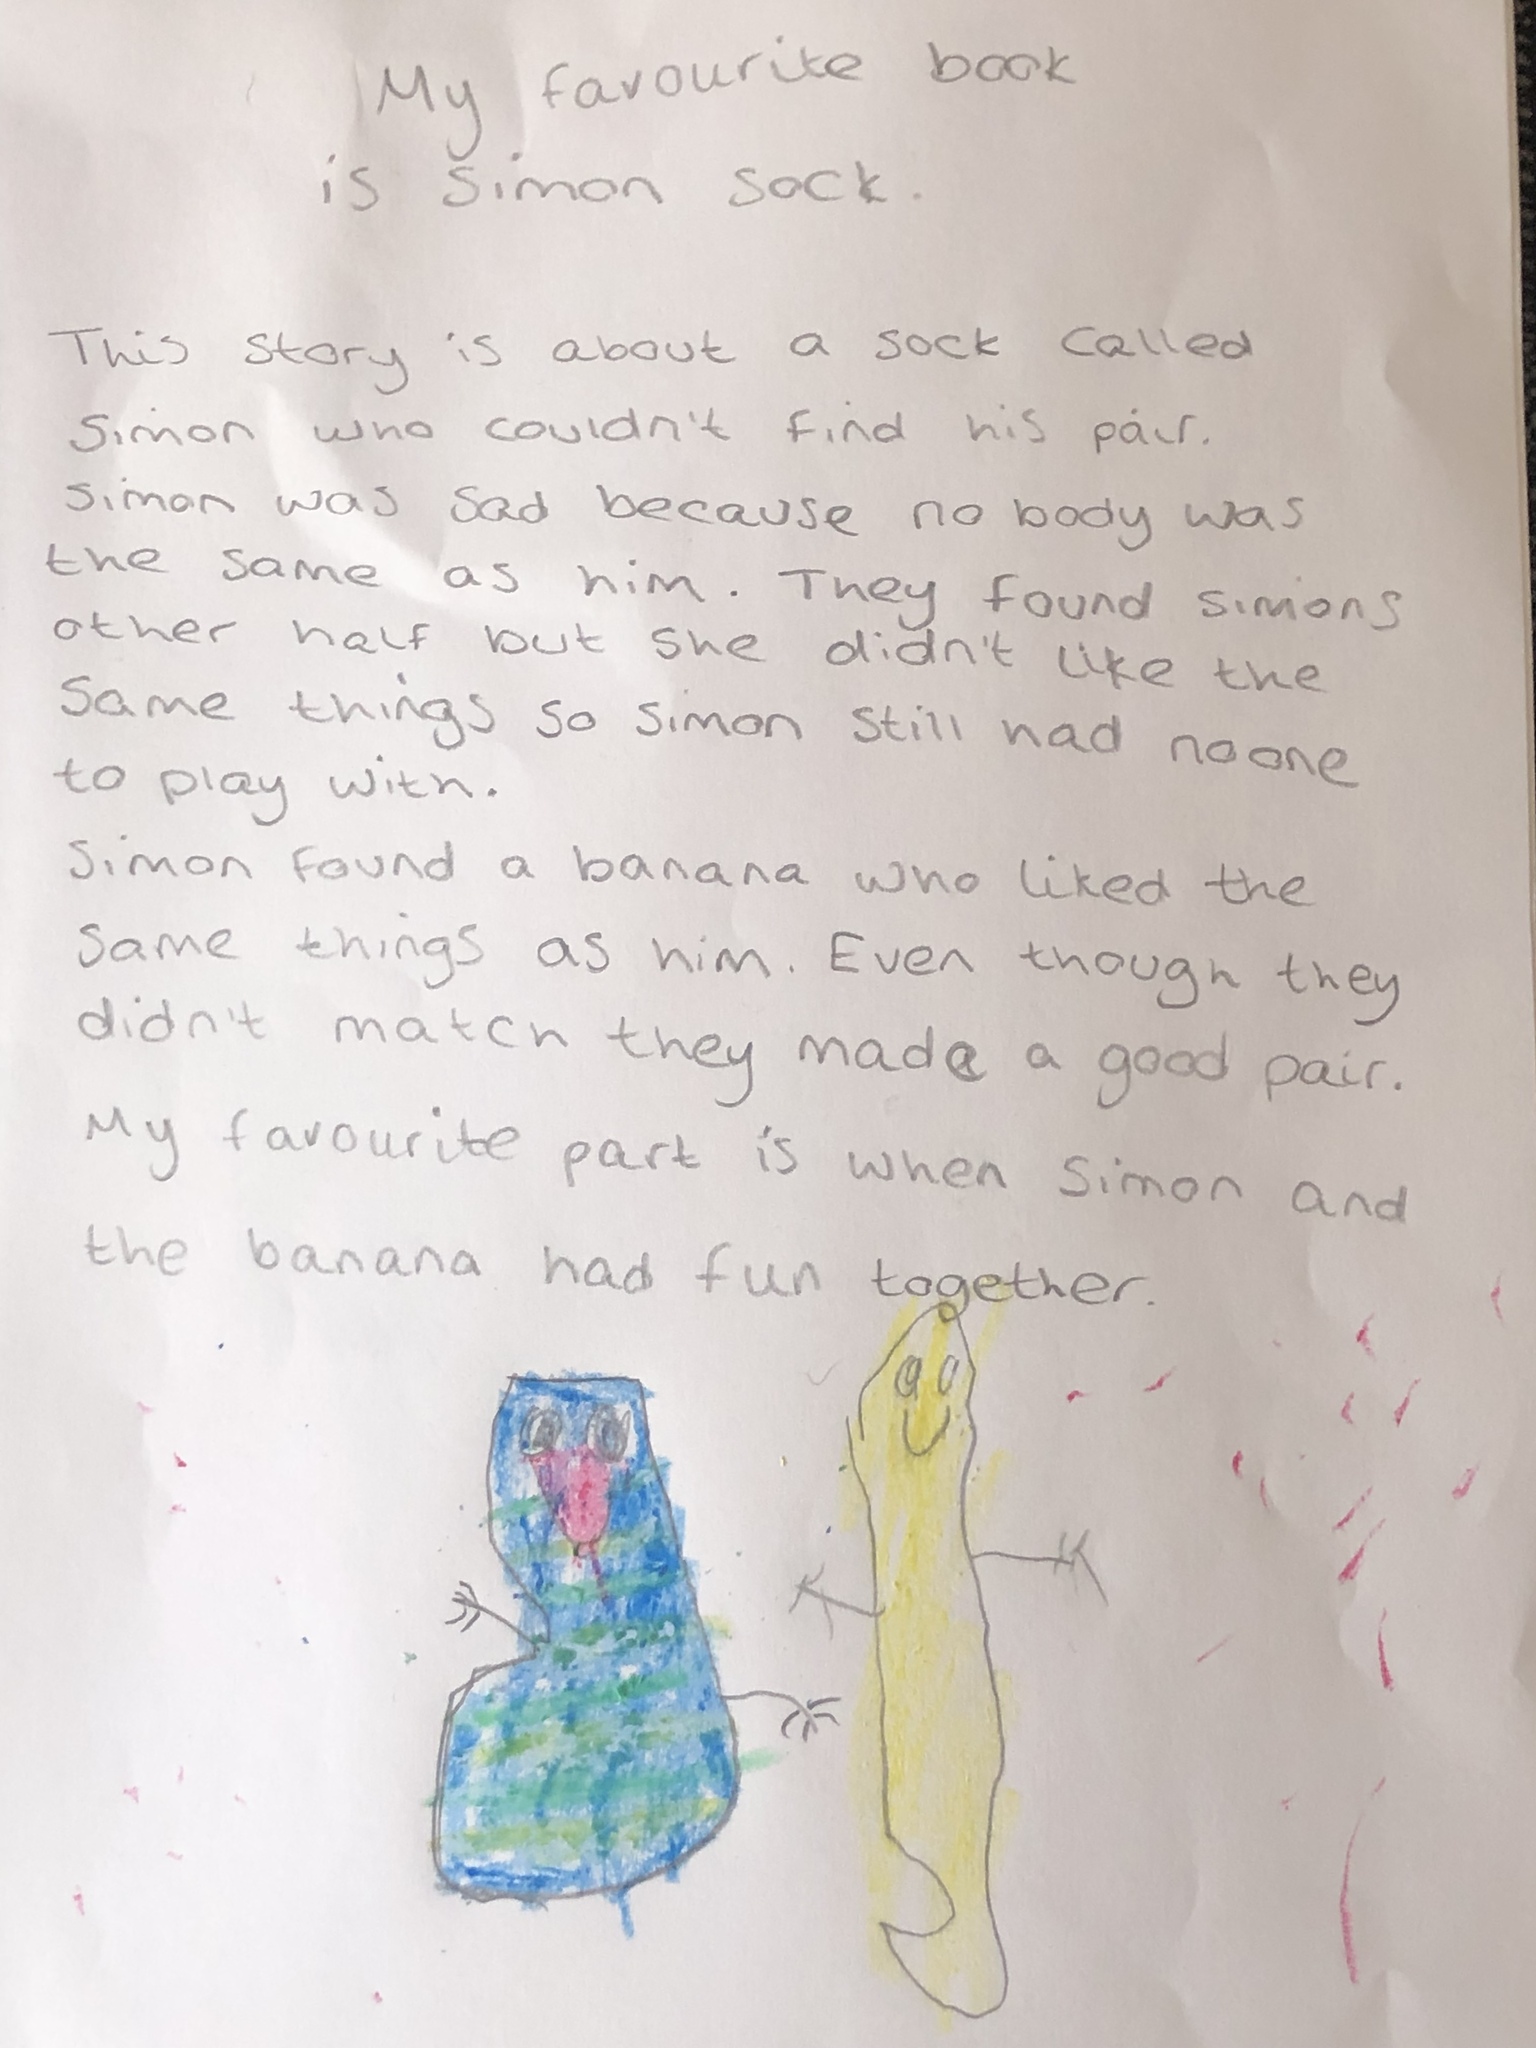 My favourite book
is Simon sock.
This story is about a sock called
Simon who couldn't find his pair.
Simon was sad because no body was
the same as him. They found simons
other half but she didn't like the
same things so simon still had noone
to play with.
Simon found a banana who liked the
same things as him. Even though they
didn't match they made a good pair.
My favourite part is when Simon and
the banana had fun together.